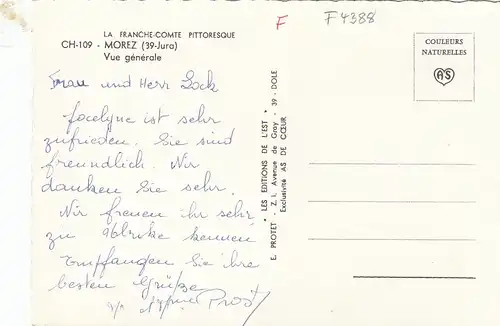 F
F 4388
LA FRANCHE-COMTE PITTORESQUE
CH-109 - MOREZ (39-Jura)
Vue générale
COULEURS
NATURELLES
AS
Frau und Herr Lock
Jocelyne ist sehr
zufrieden. Sie sind
freundlich. Wir
danken Sie sehr.
Wir freuen ihr sehr
zu kennen
Empfangen Sie ihre
besten Grüße
Prost
• LES EDITIONS DE L'EST •
E. PROTET - Z. I. Avenue de Gray - 39 - DOLE
Exclusivité AS DE CŒUR